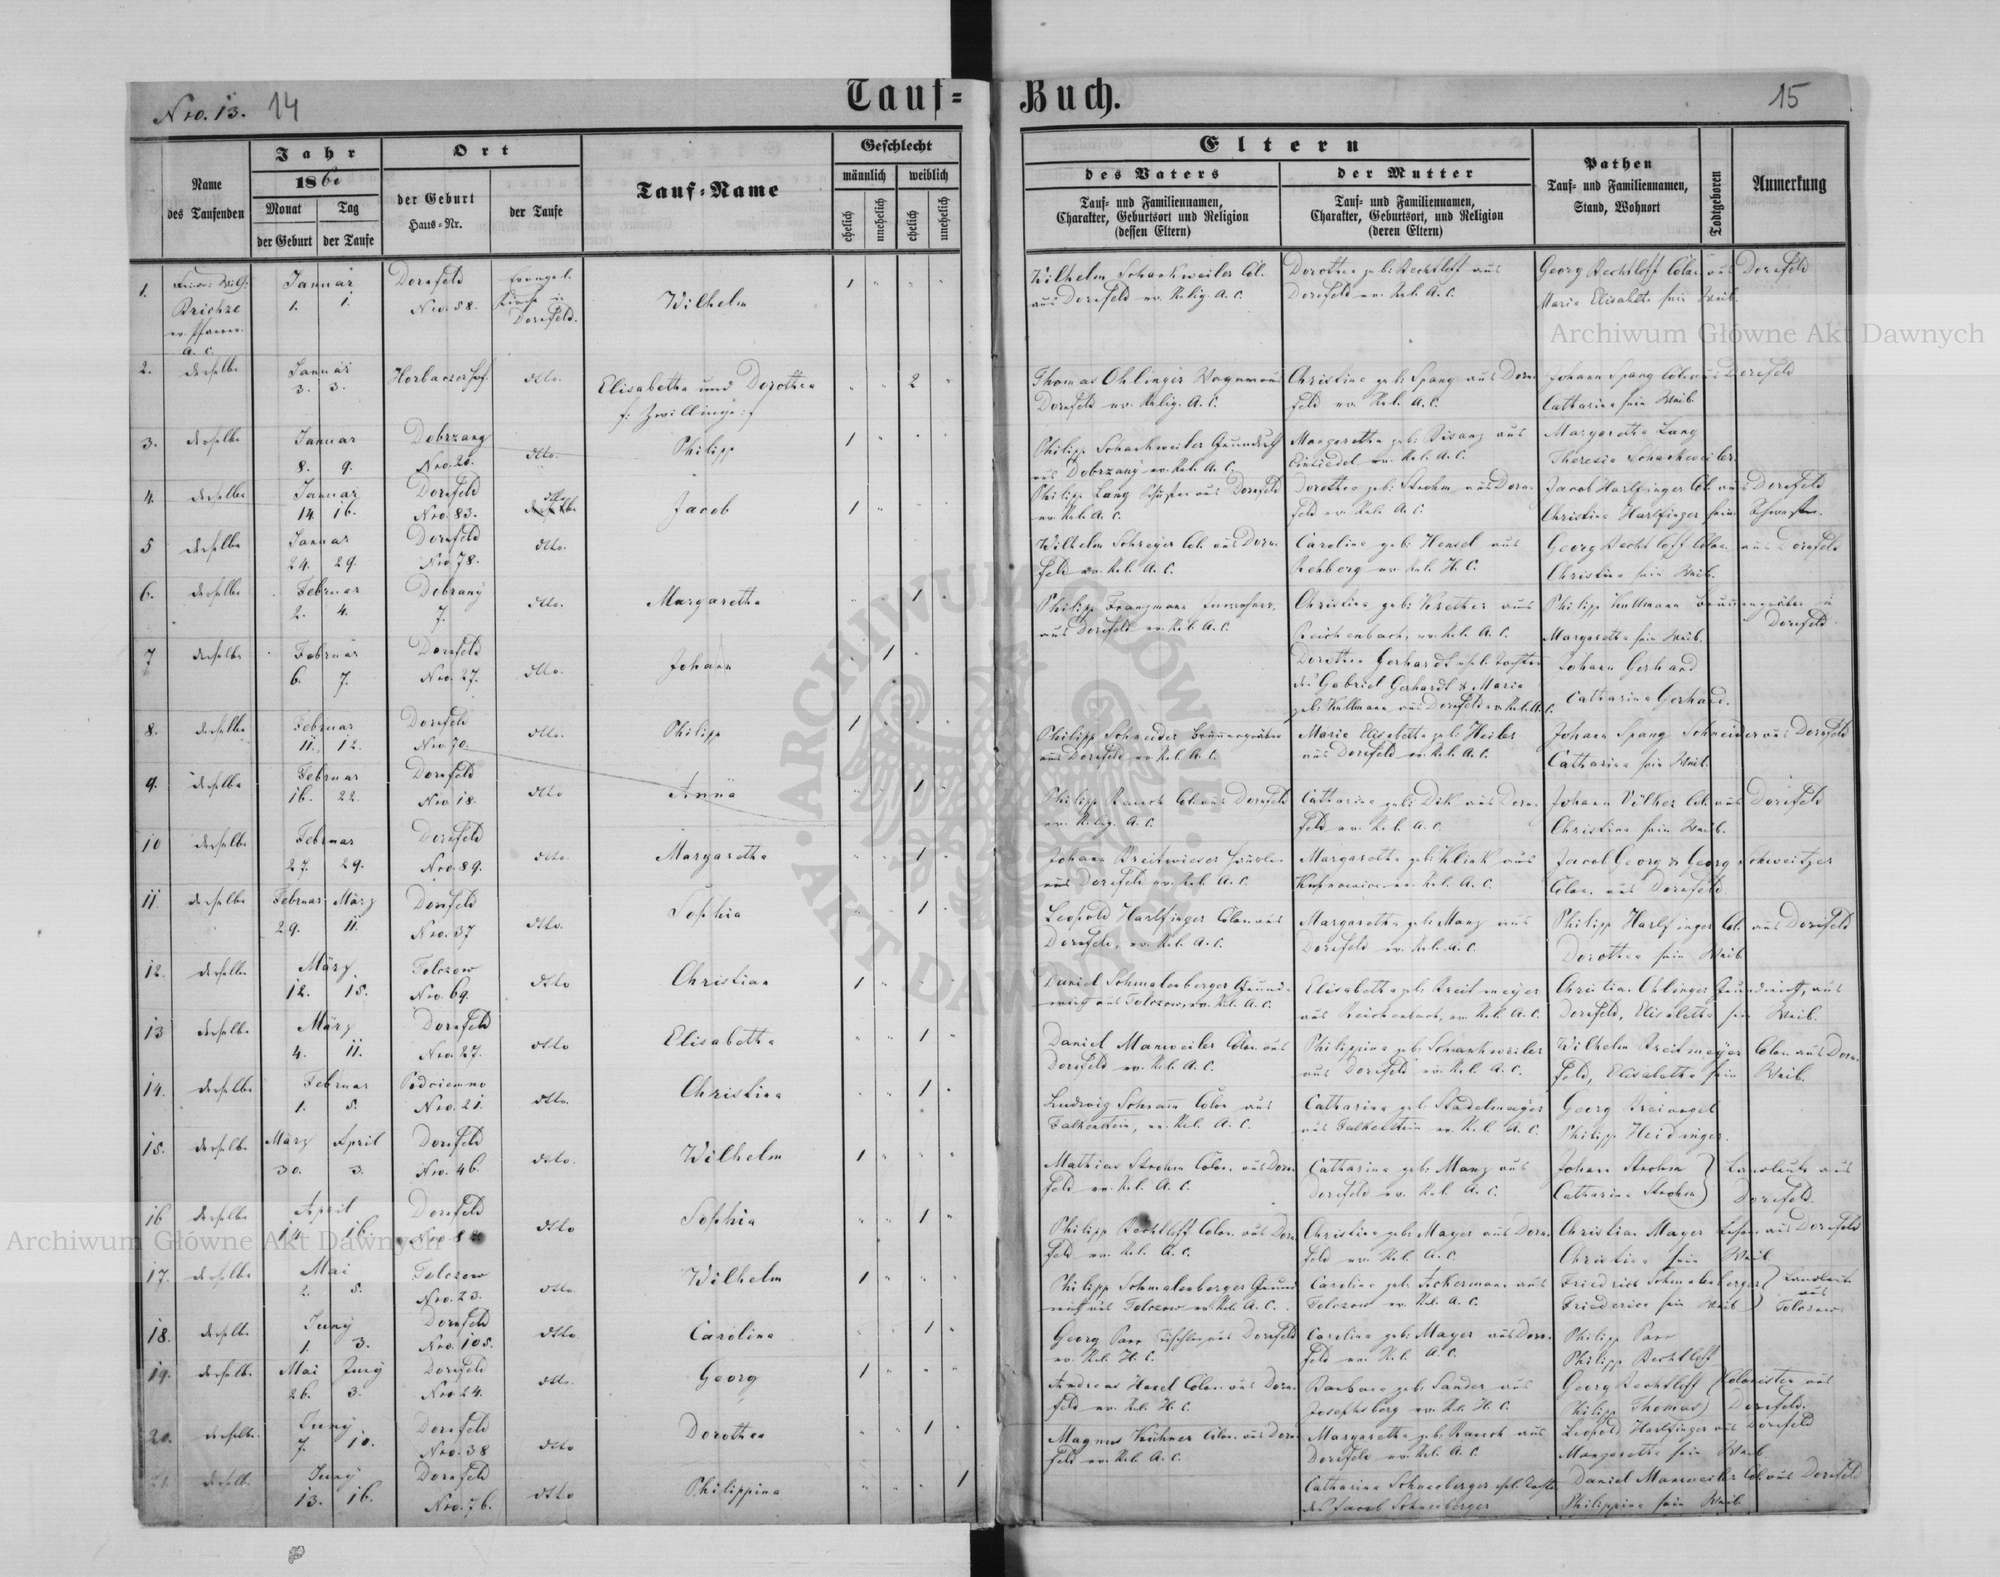 Nro. 13. 14
Tauf=Buch.
15
Name
des Taufenden
Jahr
1860
Monat
Tag
der Geburt
der Taufe
Ort
der Geburt
Haus=Nr.
der Taufe
Tauf=Name
Geschlecht
männlich
weiblich
ehelich
unehelich
ehelich
unehelich
Eltern
des Vaters
Tauf= und Familiennamen,
Charakter, Geburtsort und Religion
(dessen Eltern)
der Mutter
Tauf= und Familiennamen,
Charakter, Geburtsort, und Religion
(deren Eltern)
Pathen
Tauf= und Familiennamen,
Stand, Wohnort
Todtgeboren
Anmerkung
1. Januar Dornfeld evangel.
Reichze 1. 1. Nro. 58. Kirche in Wilhelm 1
ev. Pfarrer Dornfeld.
A. C.
Wilhelm Schankweiler Col. Dorothea geb: Bechtloff aus Georg Bechtloff Colon. aus Dornfeld
aus Dornfeld ev. Relig. A. C. Dornfeld ev. Rel. A. C. Maria Elisabetha sein Weib.
2. derselbe Januar Horbaczer Hof. dtto. Elisabetha und Dorothea 2
3. 3. /: Zwillinge :/
Thomas Ohlinger Wagner aus Christina geb: Spang aus Dorn- Johann Spang Colon aus Dornfeld
Dornfeld ev. Relig. A. C. feld ev. Rel. A. C. Catharina sein Weib.
3. derselbe Januar Dobrzany dtto. Philipp 1
8. 9. Nro. 20.
Philipp Schankweiler Grundwirth Margaretha geb: Bisanz aus Margaretha Lang
aus Dobrzany ev. Rel. A. C. Einsiedel ev. Rel. A. C. Theresia Schankweiler.
4. derselbe Januar Dornfeld dtto Jacob 1
14. 16. Nro. 83.
Philipp Lang Schuster aus Dornfeld Dorothea geb: Strohm aus Dorn- Jacob Harlfinger Col. aus Dornfeld
ev. Rel. A. C. feld ev. Rel. A. C. Christina Harlfinger sein Schwester.
5 derselbe Januar Dornfeld dtto.
24. 29. Nro. 78.
Wilhelm Schreyer Col. aus Dorn- Carolina geb: Hensel aus Georg Bechtloff Colon. aus Dornfeld
feld ev. Rel. A. C. Rehberg ev. Rel. H. C. Christina sein Weib.
6. derselbe Februar Dobrany dtto. Margaretha 1
2. 4. 7.
Philipp Frangmann Christina geb: Krether aus Philipp Kullmann Brunnengräber in
aus Dornfeld ev. Rel. A. C. Reichenbach, ev. Rel. A. C. Margaretha sein Weib. Dornfeld.
7 derselbe Februar Dornfeld dtto. Johann 1
6. 7. Nro. 27.
Dorothea Gerhardt ehel. Tochter Johann Gerhard
des Gabriel Gerhardt & Maria Catharina Gerhard.
geb. Kullmann aus Dornfeld ev. Rel. A. C.
8. derselbe Februar Dornfeld dtto. Philipp 1
11. 12. Nro. 70.
Philipp Schneider Brunnengräber Maria Elisabetha geb: Heiler Johann Spang Schneider aus Dornfeld
aus Dornfeld ev. Rel. A. C. aus Dornfeld ev. Rel. A. C. Catharina sein Weib.
9. derselbe Februar Dornfeld dtto Anna 1
16. 22. Nro. 18.
Philipp Rauch Col. aus Dornfeld Catharina geb: Dik aus Dorn- Johann Völker Col. aus Dornfeld
ev. Relig. A. C. feld ev. Rel. A. C. Christina sein Weib.
10 derselbe Februar Dornfeld dtto. Margaretha 1
27. 29. Nro. 89.
Johann Breitwieser aus Dornfeld ev. Rel. A. C. Margaretha geb: Klink aus Jacob Georg & Georg Schweitzer
ev. Rel. A. C. Colon. aus Dornfeld.
11. derselbe Februar März Dornfeld dtto. Sophia 1
29. 11. Nro. 37
Leopold Harlfinger Colon. aus Margaretha geb: Manz aus Philipp Harlfinger Col. aus Dornfeld
Dornfeld, ev. Rel. A. C. Dornfeld ev. Rel. A. C. Dorothea sein Weib
12. derselbe März Tolczow dtto Christian 1
12. 15. Nro. 69.
Daniel Schmalenberger Grund- Elisabetha geb: Breitmeyer Christian Ohlinger Grundwirth, aus
wirth aus Tolczow, ev. Rel. A. C. aus Reichenbach, ev. Rel. A. C. Dornfeld, Elisabetha sein Weib.
13 derselbe März Dornfeld dtto Elisabetha 1
4. 11. Nro. 27.
Daniel Manweiler Colon. aus Philippina geb: Schankweiler Wilhelm Breitmeyer Colon. aus Dorn-
Dornfeld ev. Rel. A. C. aus Dornfeld ev. Rel. A. C. feld, Elisabetha sein Weib.
14. derselbe Februar Podciemno dtto. Christina 1
1. 5. Nro. 21.
Ludwig Schramm Colon aus Catharina geb: Stadelmayer Georg Dreivogel
Falkenstein, ev. Rel. A. C. aus Falkenstein ev. Rel. A. C. Philipp Heidinger.
15. derselbe März April Dornfeld dtto. Wilhelm 1
30. 3. Nro. 46.
Mathias Strohm Colon. aus Dorn- Catharina geb: Manz aus Johann Strohm Landleute aus
feld ev. Rel. A. C. Dornfeld ev. Rel. A. C. Catharina Strohm Dornfeld.
16 derselbe April Dornfeld dtto Sophia 1
14. 16. Nro 8
Philipp Bechtloff Colon. aus Dorn- Christina geb: Mayer aus Dorn- Christian Mayer aus Dornfeld
feld ev. Rel. A. C. feld ev. Rel. A. C. Christina sein Weib
17. derselbe Mai Tolczow dtto. Wilhelm 1
2. 5. Nro. 23.
Philipp Schmalenberger Grund- Carolina geb: Ackermann aus Friedrich Schmalenberger Landleute
wirth aus Tolczow ev. Rel. A. C. Tolczow ev. Rel. A. C. Friederica sein Weib aus Tolczow.
18. derselbe Juny Dornfeld dtto Carolina 1
1. 3. Nro. 105.
Georg Parr Tischler aus Dornfeld Carolina geb: Mayer aus Dorn- Philipp Parr
ev. Rel. H. C. feld ev. Rel. A. C. Philipp Bechtloff
19. derselbe Mai Juny Dornfeld dtto. Georg 1
26. 3. Nro. 24.
Andreas Hexel Colon. aus Dorn- Barbara geb: Sander aus Georg Bechtloff Colonisten aus
feld ev. Rel. H. C. Josephsberg ev. Rel. H. C. Philipp Thomas Dornfeld.
20. derselbe Juny Dornfeld dtto Dorothea 1
7. 10. Nro. 38
Magnus Kühner Colon. aus Dorn- Margaretha geb: Rauch aus Leopold Harlfinger aus Dornfeld
feld ev. Rel. A. C. Dornfeld ev. Rel. A. C. Margaretha sein Weib
21. derselbe Juny Dornfeld dtto Philippina 1
13. 16. Nro. 76.
Catharina Schneeberger ehel. Tochter Daniel Manweiler Col. aus Dornfeld
des Jacob Schneeberger Philippina sein Weib
Archiwum Główne Akt Dawnych
Archiwum Główne Akt Dawnych
ARCHIWUM GŁÓWNE AKT DAWNYCH